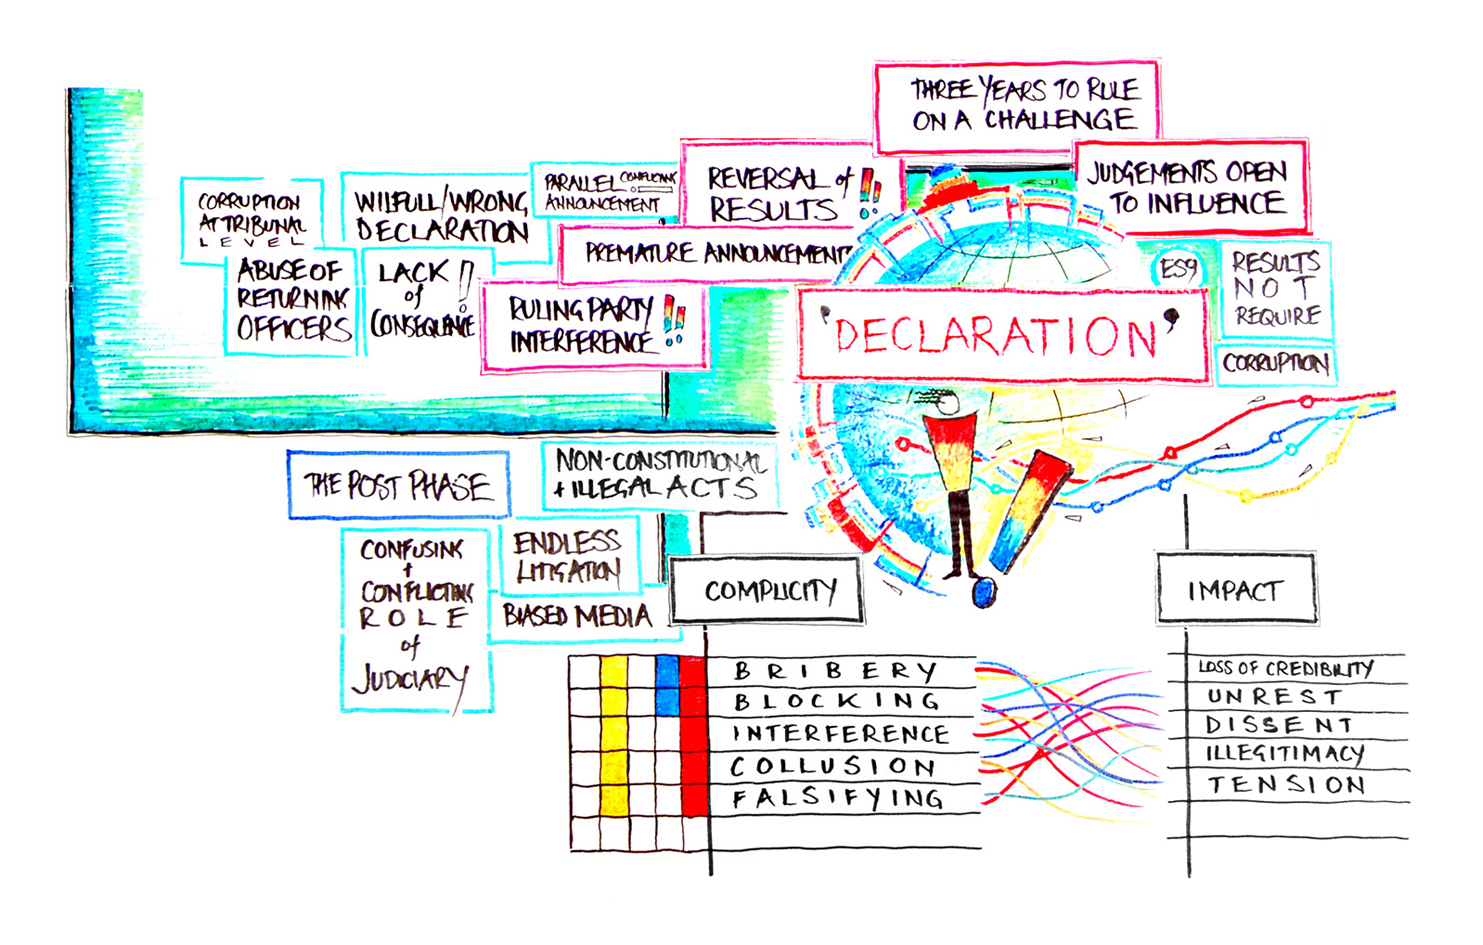 THREE YEARS TO RULE
ON A CHALLENGE
JUDGEMENTS OPEN
TO INFLUENCE
REVERSAL of
RESULTS !!
PARALLEL CONFLICTING
ANNOUNCEMENT
CORRUPTION
AT TRIBUNAL
LEVEL
WILFULL/WRONG
DECLARATION
PREMATURE ANNOUNCEMENT
ABUSE OF
RETURNING
OFFICERS
LACK !
of
CONSEQUENCE
RULING PARTY
INTERFERENCE !!
ES9
RESULTS
NOT
REQUIRE
CORRUPTION
'DECLARATION'
THE POST PHASE
NON-CONSTITUTIONAL
+ ILLEGAL ACTS
CONFUSING
+
CONFLICTING
ROLE
of
JUDICIARY
ENDLESS
LITIGATION
BIASED MEDIA
COMPLICITY
BRIBERY
BLOCKING
INTERFERENCE
COLLUSION
FALSIFYING
IMPACT
LOSS OF CREDIBILITY
UNREST
DISSENT
ILLEGITIMACY
TENSION